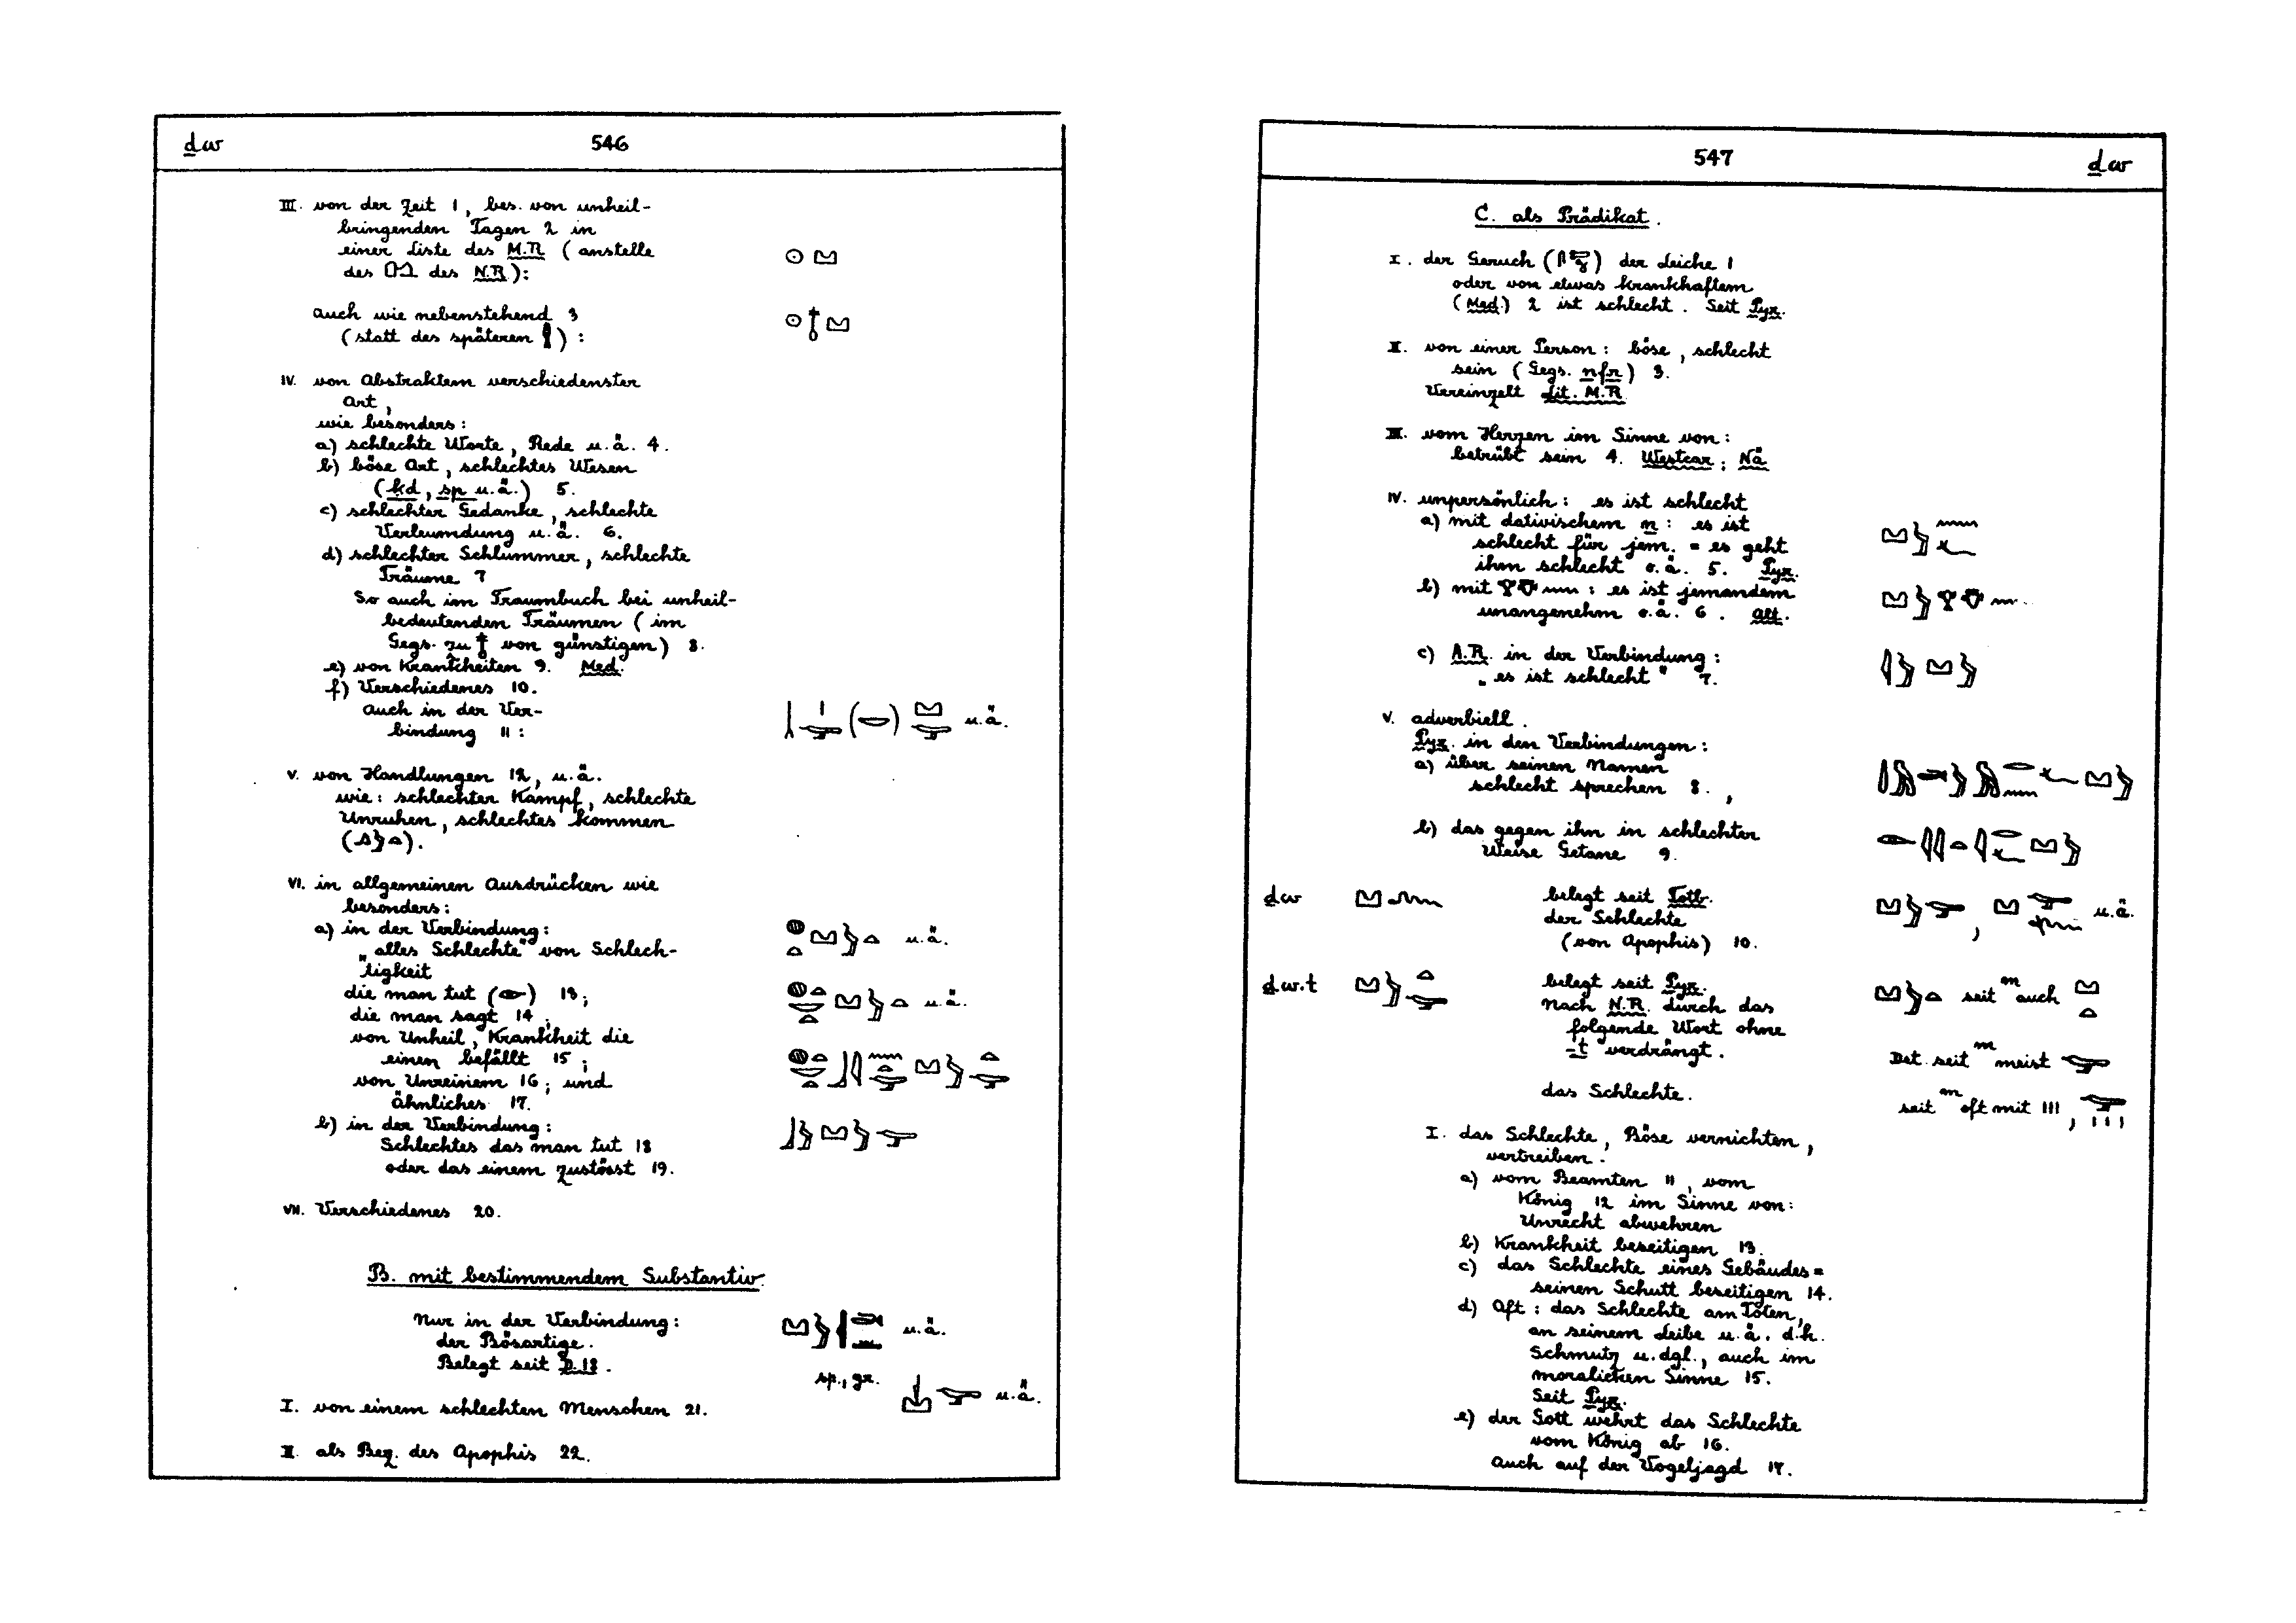 ḏw 546
III. von der Zeit 1, bes. von unheil-
bringenden Tagen 2 in
einer Liste des M.R (anstelle 𓇳𓈋
des des N.R.):
auch wie nebenstehend 3 𓇳𓄤𓈋
(statt des späteren ) :
IV. von Abstraktem verschiedenster
Art,
wie besonders:
a) schlechte Worte, Rede u.ä. 4.
b) böse Art, schlechtes Wesen
(ḳd, sp u.ä.) 5.
c) schlechter Gedanke, schlechte
Verleumdung u.ä. 6.
d) schlechter Schlummer, schlechte
Träume 7
So auch im Traumbuch bei unheil-
bedeutenden Träumen (im
Gegs. zu 𓄤 von günstigen) 8.
e) von Krankheiten 9. Med.
f) Verschiedenes 10.
auch in der Ver- u.ä.
bindung 11:
V. von Handlungen 12, u.ä.
wie: schlechter Kampf, schlechte
Unruhen, schlechtes kommen
(𓂻𓅱𓏏).
VI. in allgemeinen Ausdrücken wie
besonders:
a) in der Verbindung: 𓐍𓏏𓈋𓅱𓏏 u.ä.
"alles Schlechte" von Schlech-
tigkeit
die man tut (𓁹) 13; 𓐍𓏏𓎟𓏏𓈋𓅱𓏏 u.ä.
die man sagt 14;
von Unheil, Krankheit die
einen befällt 15;
von Unreinem 16; und
ähnliches 17.
b) in der Verbindung: 𓃀𓅱𓈋𓅱𓅪
Schlechtes das man tut 18
oder das einem zustösst 19.
VII. Verschiedenes 20.
B. mit bestimmendem Substantiv.
Nur in der Verbindung: u.ä.
der Bösartige.
Belegt seit D.18.
sp., gr. u.ä.
I. von einem schlechten Menschen 21.
II. als Bez. des Apophis 22.
547 ḏw
C. als Prädikat.
I. der Geruch ( ) der Leiche 1
oder von etwas krankhaftem
(Med.) 2 ist schlecht. Seit Pyr.
II. von einer Person: böse, schlecht
sein (Gegs. nfr) 3.
Vereinzelt Lit. M.R
III. vom Herzen im Sinne von:
betrübt sein 4. Westcar; Nä
IV. unpersönlich: es ist schlecht
a) mit dativischem n: es ist 𓈋𓅱𓈖𓆑
schlecht für jem. = es geht
ihm schlecht o.ä. 5. Pyr.
b) mit 𓄣 : es ist jemandem
unangenehm o.ä. 6. alt.
c) A.R. in der Verbindung: 𓇋𓅱𓈋𓅱
"es ist schlecht" 7.
V. adverbiell.
Pyr. in den Verbindungen:
a) über seinen Namen
schlecht sprechen 8.,
b) das gegen ihn in schlechter 𓁹𓇋𓇋𓏏𓇋𓂋𓆑𓈋𓅱
Weise Getane 9.
ḏw belegt seit Totb. u.ä.
der Schlechte
(von Apophis) 10.
ḏw.t 𓈋𓅱𓏏𓅪 belegt seit Pyr. 𓈋𓅱𓏏 seit m auch 𓈋𓏏
Nach N.R. durch das
folgende Wort ohne
-t verdrängt. Det. seit m meist 𓅪
das Schlechte. seit m oft mit III, 𓅪𓏥
I. das Schlechte, Böse vernichten,
vertreiben.
a) vom Beamten 11, vom
König 12 im Sinne von:
Unrecht abwehren
b) Krankheit beseitigen 13.
c) das Schlechte eines Gebäudes =
seinen Schutt beseitigen 14.
d) Oft: das Schlechte am Toten,
an seinem Leibe u.ä. d.h.
Schmutz u.dgl., auch im
moralichen Sinne 15.
Seit Pyr.
e) der Gott wehrt das Schlechte
vom König ab 16.
Auch auf der Vogeljagd 17.